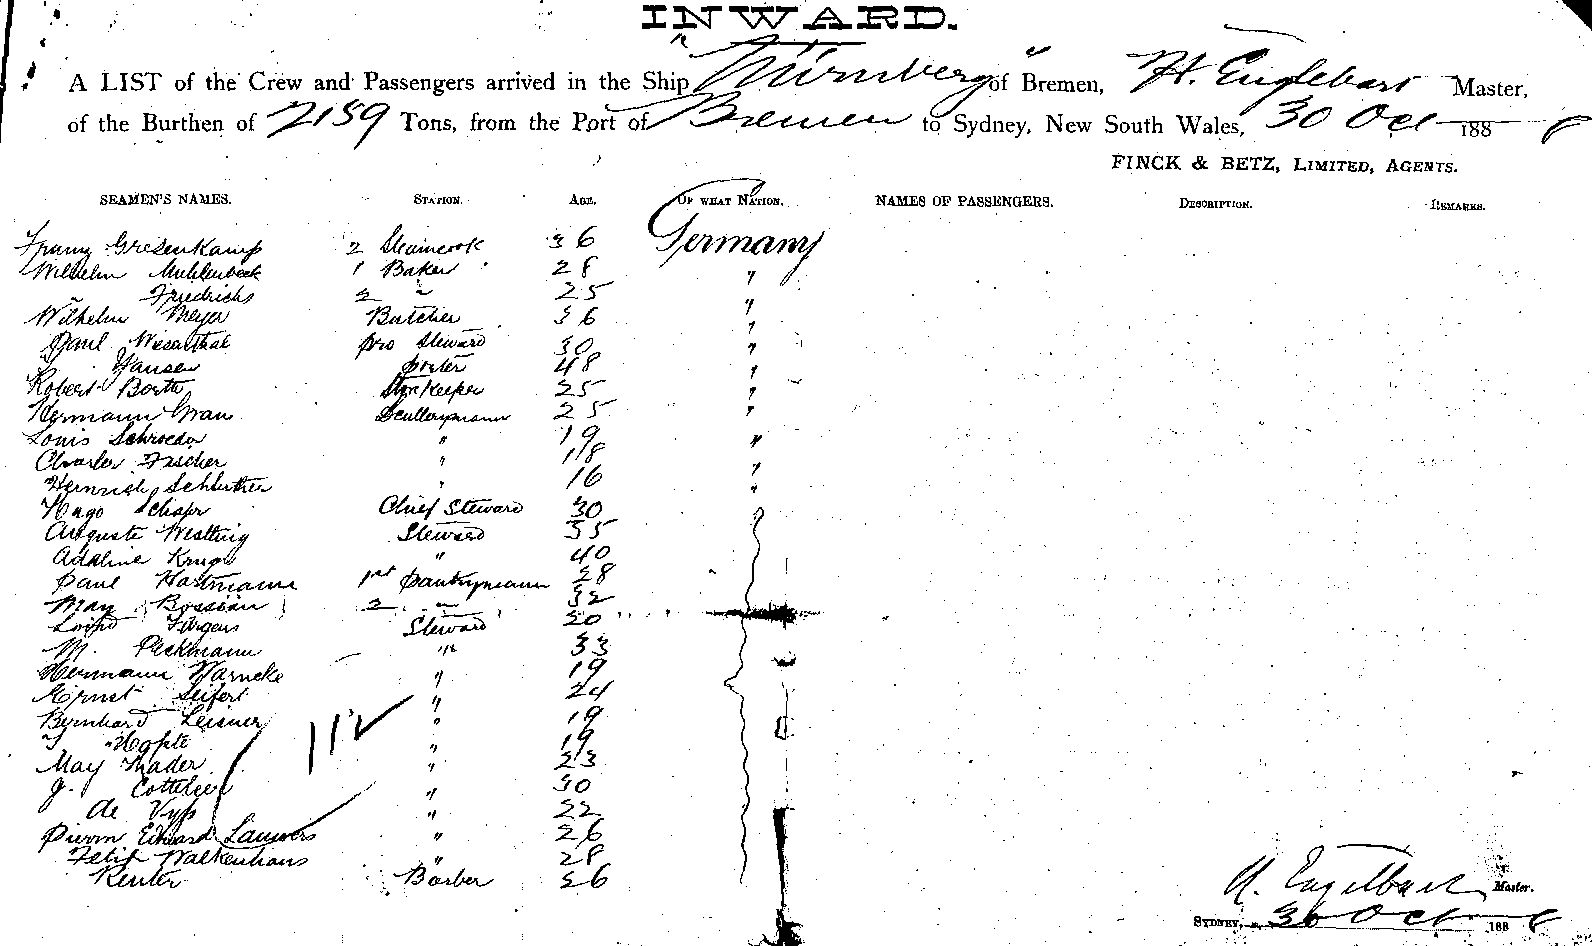 INWARD.
A LIST of the Crew and Passengers arrived in the Ship "Nürnberg" of Bremen, H. Englebart Master,
of the Burthen of 2159 Tons, from the Port of Bremen to Sydney, New South Wales, 30 Oct 188 8
FINCK & BETZ, LIMITED, AGENTS.
SEAMEN'S NAMES. STATION. AGE. OF WHAT NATION. NAMES OF PASSENGERS. DESCRIPTION. REMARKS.
Franz Gresenkamp 2 Steamcook 36 Germany
Wilhelm Muhlenbeck 1 Baker 28 "
" Friedrichs 2 " 25 "
Wilhelm Meyer Butcher 36 "
Paul Wiesenthal pro Steward 30 "
Hansen porter 48 "
Robert Booth Storkeeper 25 "
Hermann Grau Scullerymann 25 "
Louis Schroeder " 19 "
Charles Fischer " 18 "
Heinrich Schluther " 16 "
Hugo Chief Steward 30
Auguste Westting Steward 35
Adaline Kruge " 40
Paul Hartmann 1st pantrymann 28
Max Bossian 2 " 32
Jürgens Steward 20
M. Peckmann " 33
Hermann Warneke " 19
Ernst Seifert " 24
Bernhard Leisner " 19
" 19
Max Thader " 23
J. " 30
de Vys " 22
Edward Lauwers " 26
Felix Walkenhaus " 28
Renter Barber 26
H. Engelbart Master.
SYDNEY, 30 Oct 188 8